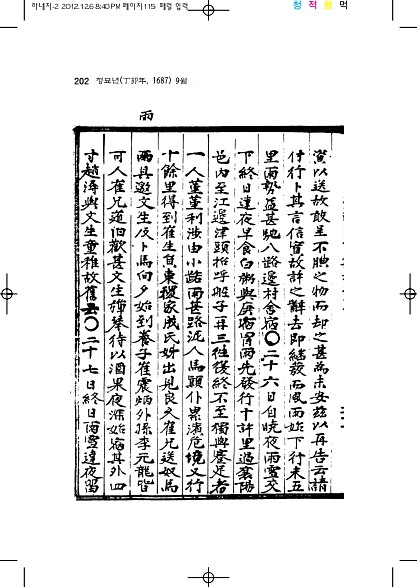 하내지-2 2012.12.6 8:40 PM 페이지 115 매형 입력
청 적 황 먹
202 정묘년(丁卯年, 1687) 9월
雨
資以送故敢呈不腆之物而却之甚爲未安玆以再告云請
付行卜其言信實故許之辭去卽結裝而風雨始下行未五
里雨勢益甚馳八路邊村舍宿〇二十六日自曉夜雨雪交
下終日達夜早食白粥與 冒雨先發行十許里過襄陽
邑內至江邊津頭招呼船子再三 後終不至獨與蹇足者
一人堇堇利涉由小路雨甚路泥人馬顚仆累濱危境又行
十餘里得到崔生 家成民姸出見良久崔兄送奴馬
兩具邀文生及卜馬向夕始到養子崔震炳外孫李元龍皆
可人崔兄道舊歡甚文生彈琴待以酒果夜深始宿其外四
寸趙 與文生重 故舊云〇二十七日終日雨雪達夜留